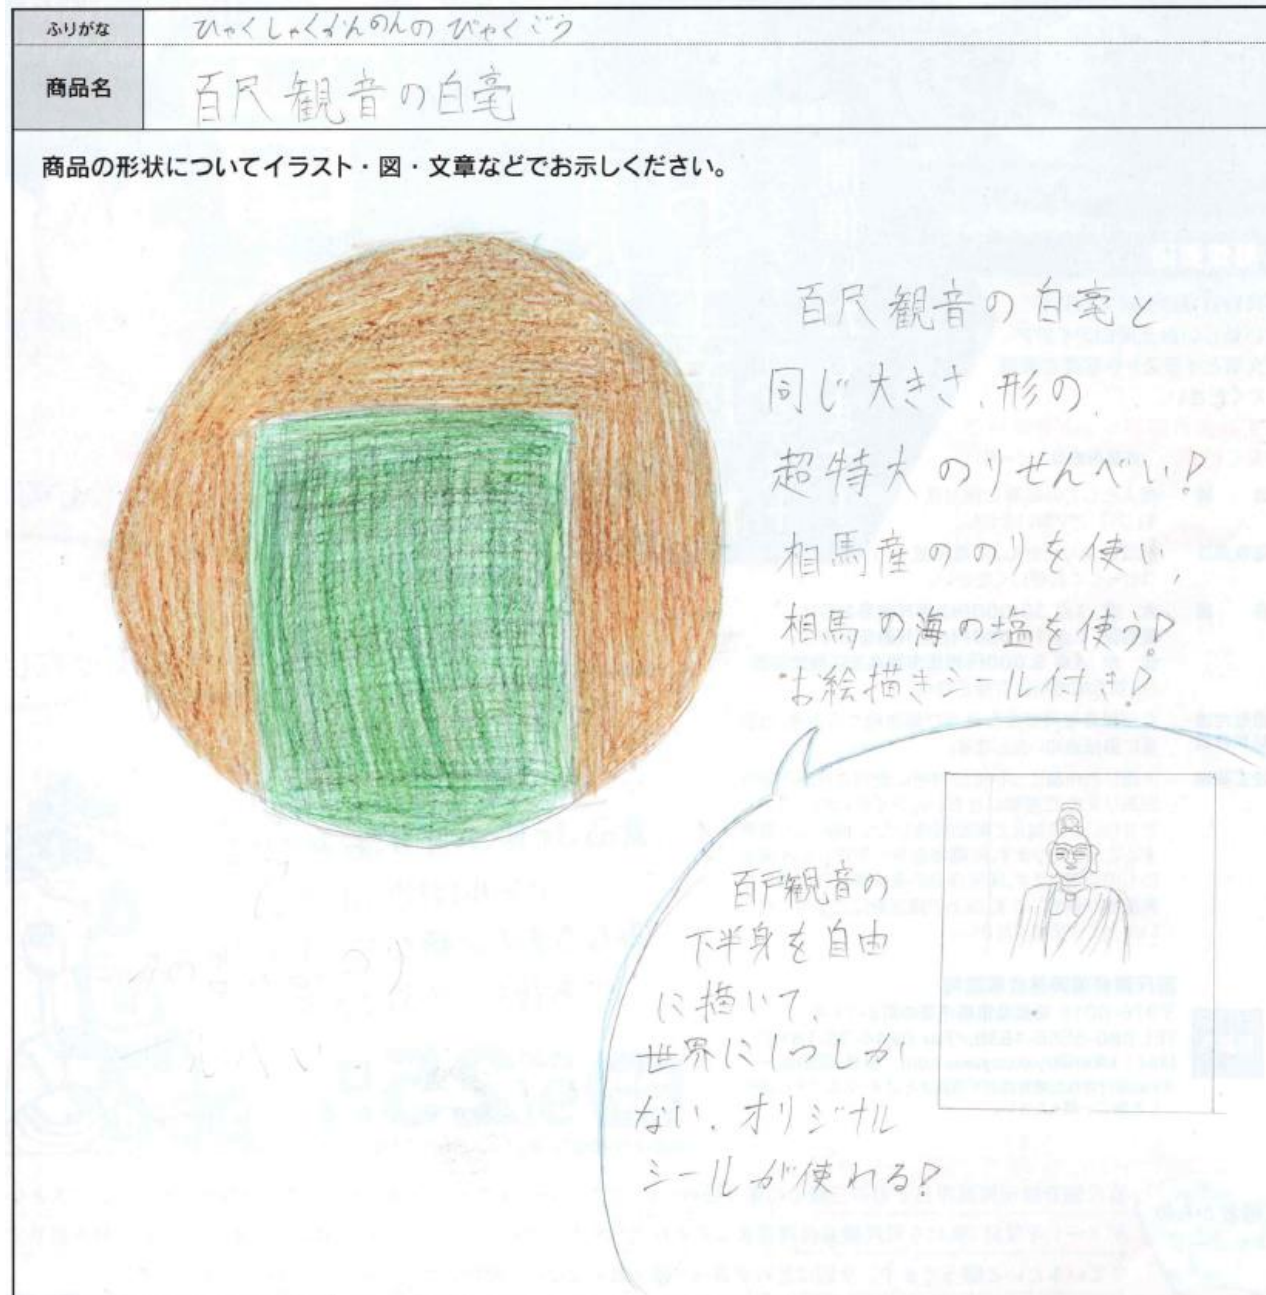 ふりがな
ひゃくしゃくかんのんの びゃくごう
商品名
百尺観音の白毫
商品の形状についてイラスト・図・文章などでお示しください。
百尺観音の白毫と
同じ大きさ、形の、
超特大のりせんべい!
相馬産ののりを使い、
相馬の海の塩を使う!
お絵描きシール付き!
百尺観音の
下半身を自由
に描いて、
世界に1つしか
ない、オリジナル
シールが使れる!